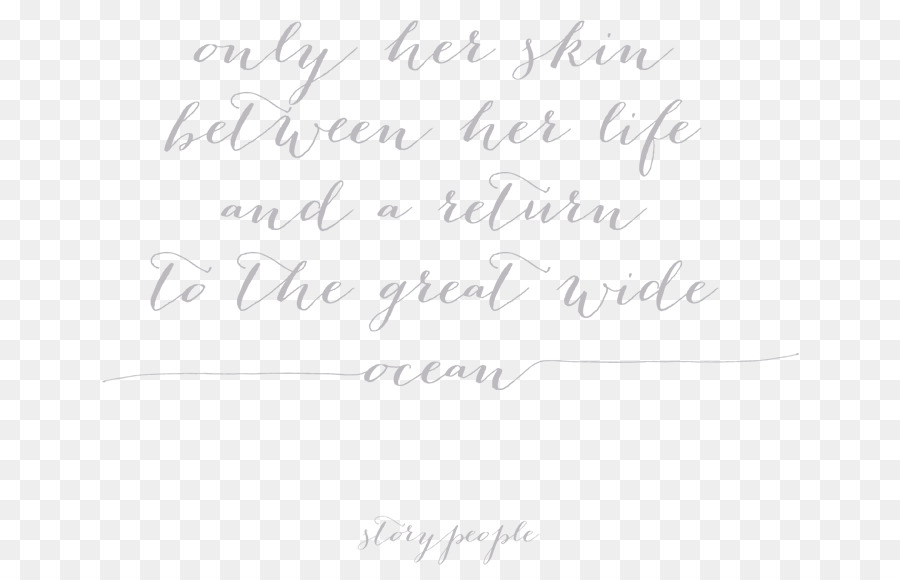 only her skin
between her life
and a return
to the great wide
ocean
story people